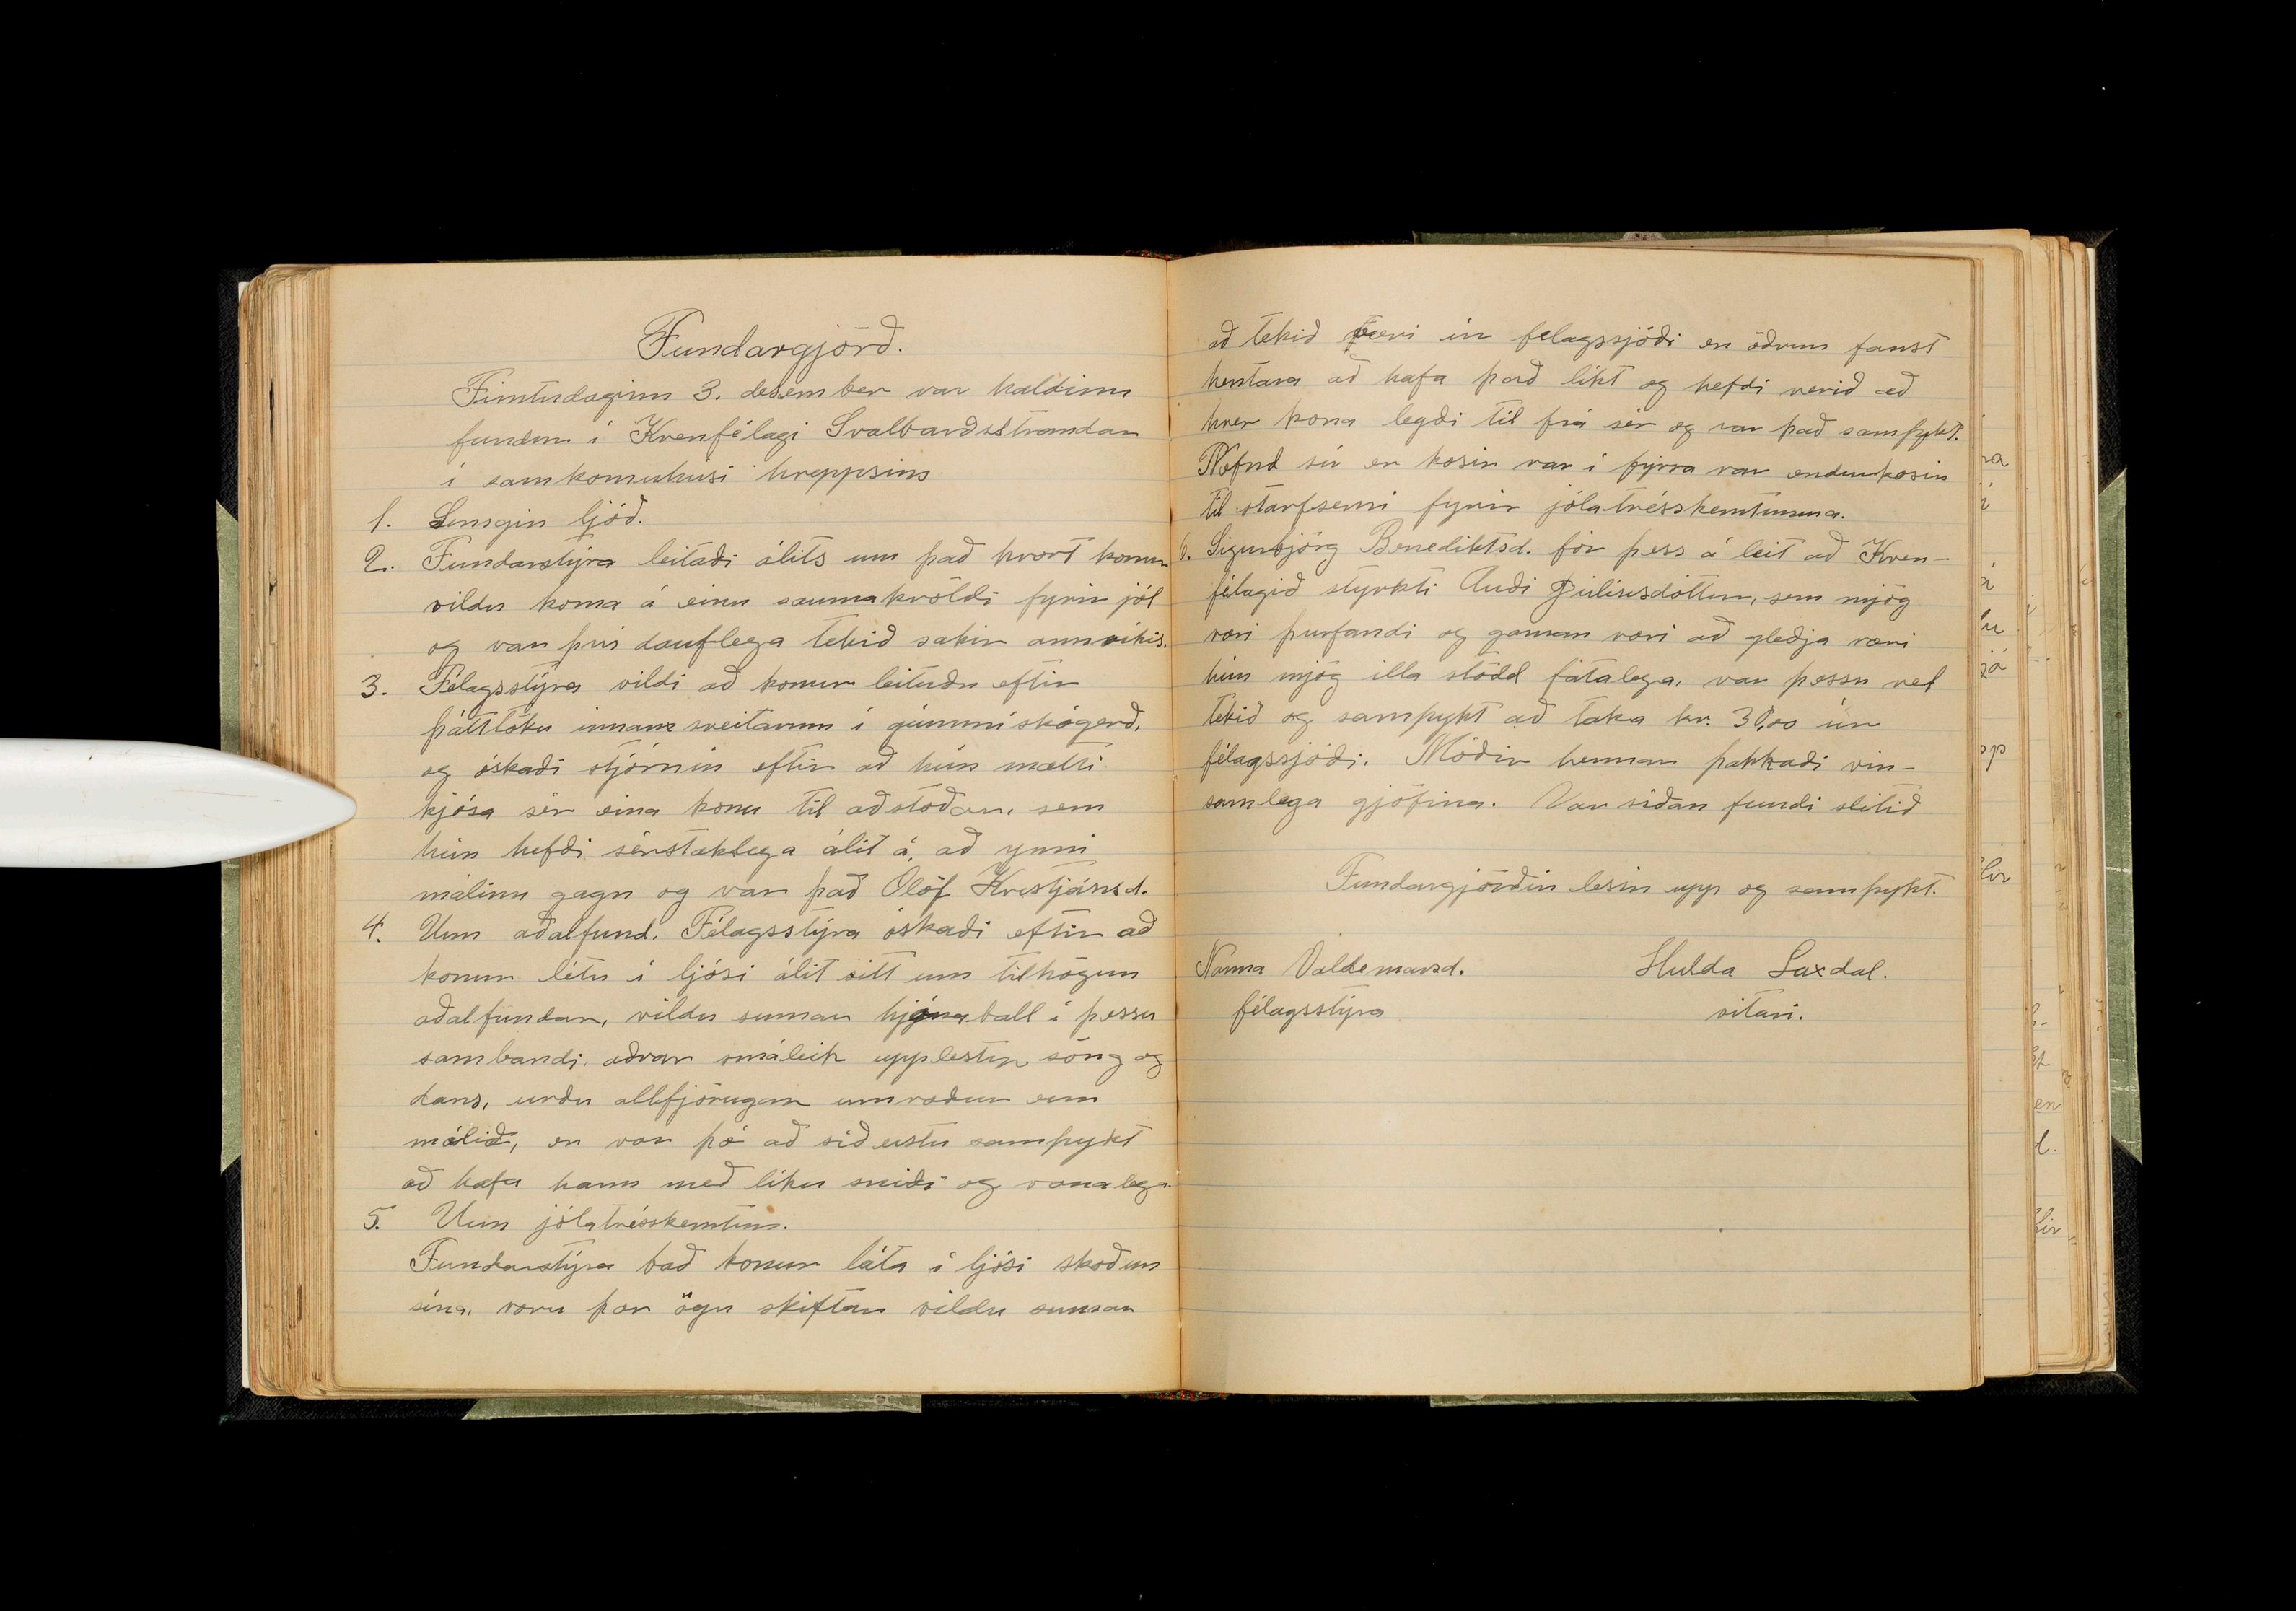 Fundargjörð.
Fimtudaginn 3. desember var haldinn
fundur í Kvenfélagi Svalbarðsstrandar
í samkomuhúsi hreppsins
1. Sungin ljóð.
2. Fundarstýra leitaði álits um það hvort konur
vildu koma á einu saumakvöldi fyrir jól
og var því dauflega tekið sakir annríkis.
3. Félagsstýra vildi að konur leituðu eftir
þátttöku innan sveitarinn í gúmmískógerð,
og óskaði stjórnin eftir að hún mætti
kjósa sér eina konu til aðstoðar, sem
hún hefði sérstaklega álit á, að ynni
málinu gagn og var það Ólöf Kristjánsd.
4. Um aðalfund. Félagsstýra óskaði eftir að
konur létu í ljósi álit sitt um tilhögun
aðalfundar, vildu sumar hjónaball í þessu
sambandi, aðrar smáleik upplestur söng og
dans, urðu allfjörugar umræður um
málið, en var þó að síðustu samþykt
að hafa hann með líku sniði og vanalega.
5. Um jólatrésskemtun.
Fundarstýra bað konur láta í ljósi skoðun
sína, voru þær ögn skiftar vildu sumar
að tekið væri úr félagssjóði en öðrum fanst
hentara að hafa það líkt og hefði verið að
hver kona legði til frá sér og var það samþykt.
Nefnd sú er kosin var í fyrra var endurkosin
til starfsemi fyrir jólatrésskemtunina.
6. Sigurbjörg Benediktsd. fór þess á leit að Kven-
félagið styrkti Auði Júlíusdóttur, sem mjög
væri þurfandi og gaman væri að gleðja væri
hún mjög illa stödd fátalega, var þessu vel
tekið og samþykt að taka kr. 30,00 úr
félagssjóði. Móðir hennar þakkaði vin-
samlega gjöfina. Var síðan fundi slitið
Fundargjörðin lesin upp og samþykt.
Nanna Valdemarsd. Hulda Laxdal.
félagsstýra ritari.